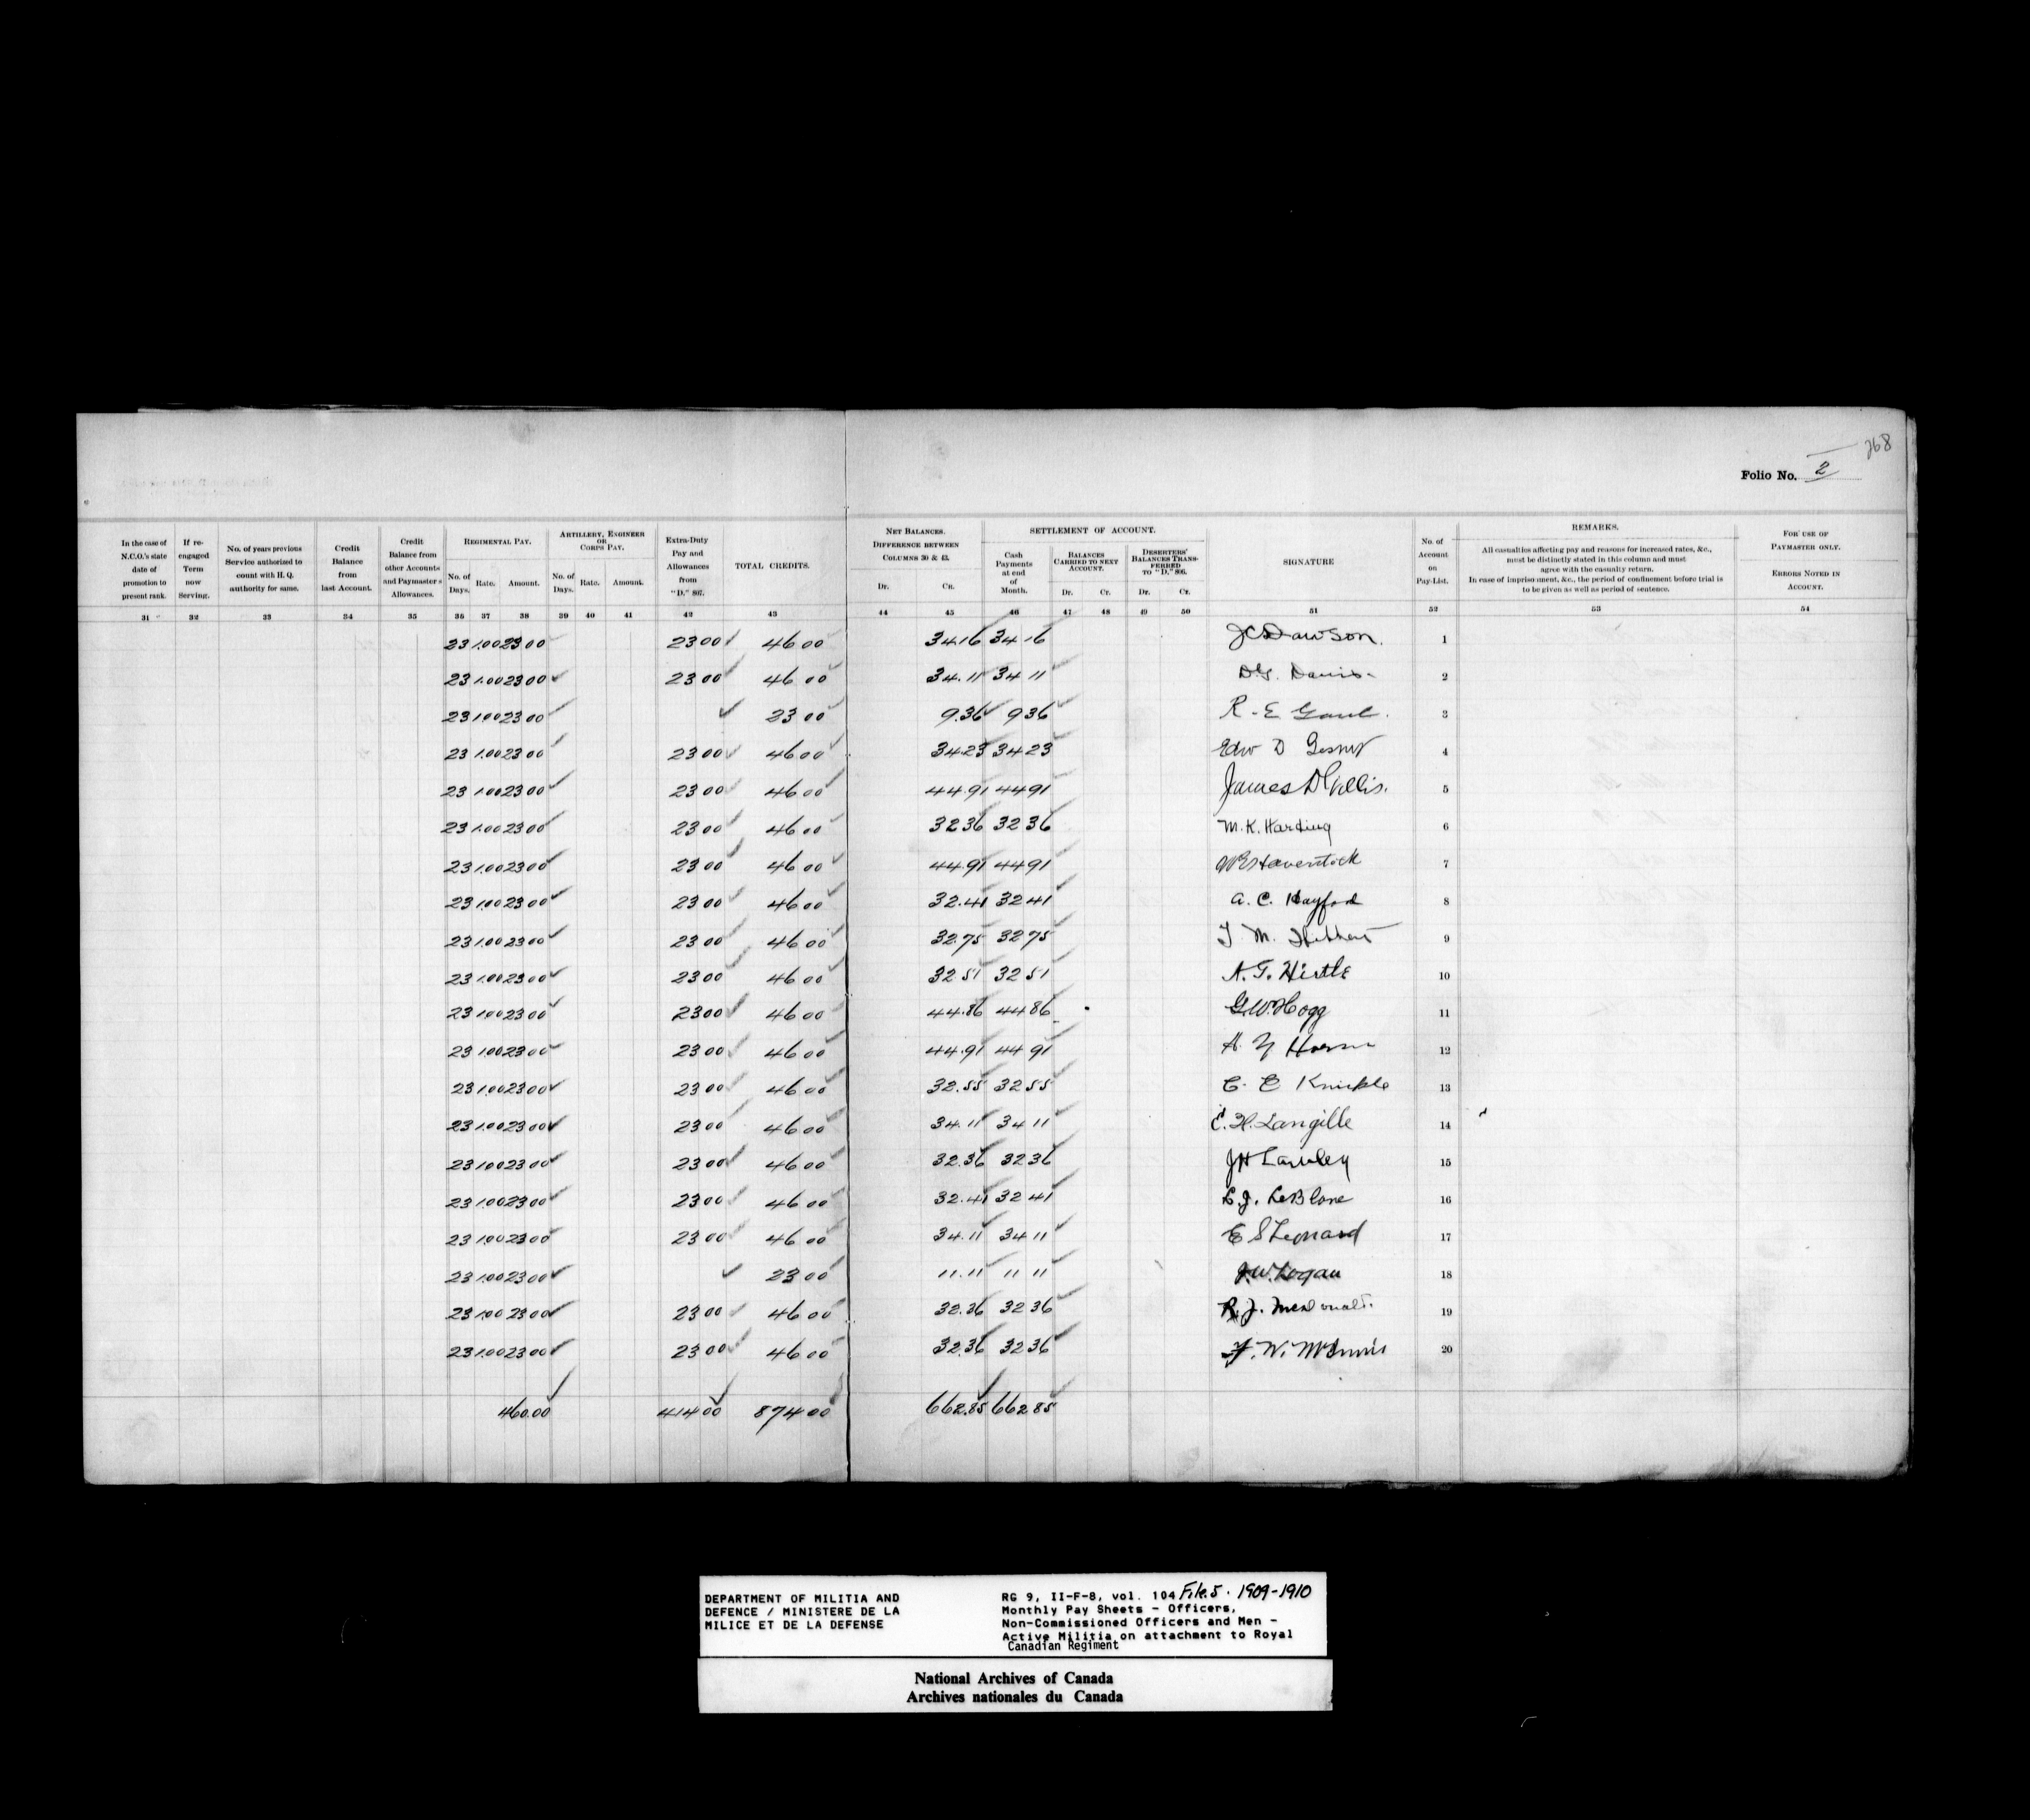 268
Folio No. 2
In the case of N.C.O.'s state date of promotion to present rank.
If re-engaged Term now Serving.
No. of years previous Service authorized to count with H. Q. authority for same.
Credit Balance from last Account.
Credit Balance from other Accounts and Paymaster s Allowances.
REGIMENTAL PAY.
No. of Days. Rate. Amount.
ARTILLERY, ENGINEER OR CORPS PAY.
No. of Days. Rate. Amount.
Extra-Duty Pay and Allowances from "D." 807.
TOTAL CREDITS.
NET BALANCES.
DIFFERENCE BETWEEN COLUMNS 30 & 43.
Dr. Cr.
SETTLEMENT OF ACCOUNT.
Cash Payments at end of Month.
BALANCES CARRIED TO NEXT ACCOUNT.
Dr. Cr.
DESERTERS' BALANCES TRANSFERRED TO "D." 806.
Dr. Cr.
SIGNATURE
No. of Account on Pay-List.
REMARKS.
All casualties affecting pay and reasons for increased rates, &c., must be distinctly stated in this column and must agree with the casualty return.
In case of impriso ment, &c., the period of confinement before trial is to be given as well as period of sentence.
FOR USE OF PAYMASTER ONLY.
ERRORS NOTED IN ACCOUNT.
31 32 33 34 35 36 37 38 39 40 41 42 43 44 45 46 47 48 49 50 51 52 53 54
23 1.00 23 00 23 00 46 00 34.16 34 16 J C Dawson. 1
23 1.00 23 00 23 00 46 00 34.11 34 11 Davis. 2
23 1.00 23 00 23 00 9.36 9 36 R. E Gaul. 3
23 1.00 23 00 23 00 46 00 34.23 34 23 Edw D Gesner 4
23 1.00 23 00 23 00 46 00 44.91 44 91 James D Gillis. 5
23 1.00 23 00 23 00 46 00 32 36 32 36 M. K. Harding 6
23 1.00 23 00 23 00 46 00 44.91 44 91 Haverstock 7
23 1.00 23 00 23 00 46 00 32.41 32 41 A. C. Hayford 8
23 1.00 23 00 23 00 46 00 32.75 32 75 M. 9
23 1.00 23 00 23 00 46 00 32 51 32 51 A. T. Hirtle 10
23 1.00 23 00 23 00 46 00 44.86 44 86 G. W. Hogg 11
23 1.00 23 00 23 00 46 00 44.91 44 91 12
23 1.00 23 00 23 00 46 00 32.55 32 55 C. E 13
23 1.00 23 00 23 00 46 00 34.11 34 11 E. H. Langille 14
23 1.00 23 00 23 00 46 00 32.36 32 36 J H 15
23 1.00 23 00 23 00 46 00 32.41 32 41 J. LeBlanc 16
23 1.00 23 00 23 00 46 00 34.11 34 11 E S Leonard 17
23 1.00 23 00 23 00 11.11 11 11 J. W. Logan 18
23 1.00 23 00 23 00 46 00 32.36 32 36 R. J. McDonald. 19
23 1.00 23 00 23 00 46 00 32.36 32 36 F. W. McInnis 20
460.00 414 00 874 00 662.85 662 85
DEPARTMENT OF MILITIA AND
DEFENCE / MINISTERE DE LA
MILICE ET DE LA DEFENSE
RG 9, II-F-8, vol. 104 File 5. 1909-1910
Monthly Pay Sheets - Officers,
Non-Commissioned Officers and Men -
Active Militia on attachment to Royal
Canadian Regiment
National Archives of Canada
Archives nationales du Canada